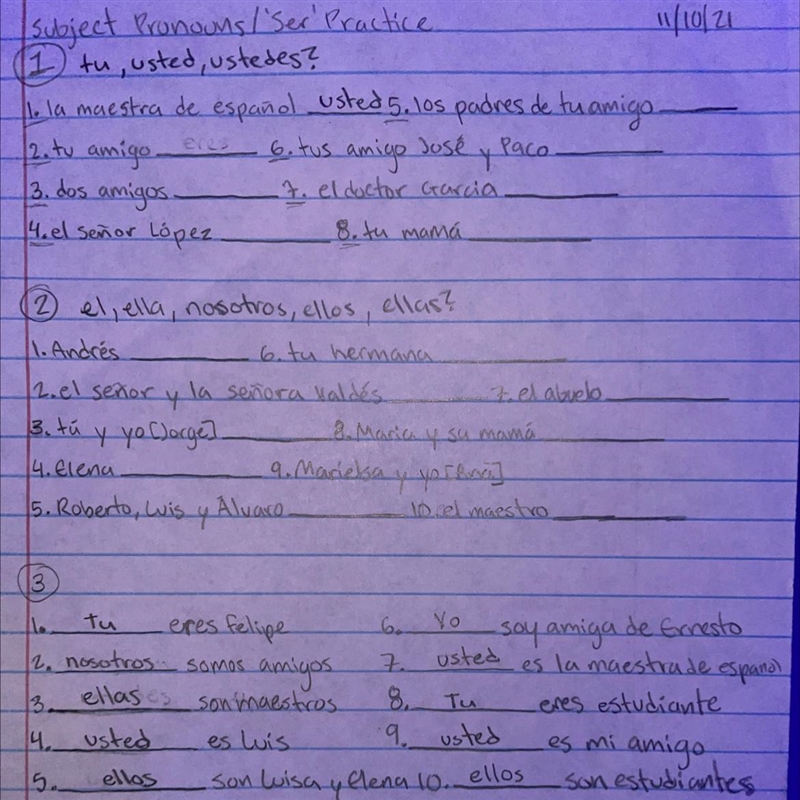 Subject Pronouns/'Ser' Practice 11/10/21
1 tu, usted, ustedes?
1. la maestra de español usted 5. los padres de tu amigo
2. tu amigo eres 6. tus amigo José y Paco
3. dos amigos 7. el doctor Garcia
4. el señor López 8. tu mamá
2 el, ella, nosotros, ellos, ellas?
1. Andrés 6. tu hermana
2. el señor y la señora Valdés 7. el abuelo
3. tú y yo [Jorge] 8. Maria y su mamá
4. Elena 9. y yo [Ana]
5. Roberto, Luis y Álvaro 10. el maestro
3
1. Tu eres Felipe 6. Yo soy amiga de Ernesto
2. nosotros somos amigos 7. usted es la maestra de español
3. ellas son maestros 8. Tu eres estudiante
4. usted es Luis 9. usted es mi amigo
5. ellos son Luisa y Elena 10. ellos son estudiantes